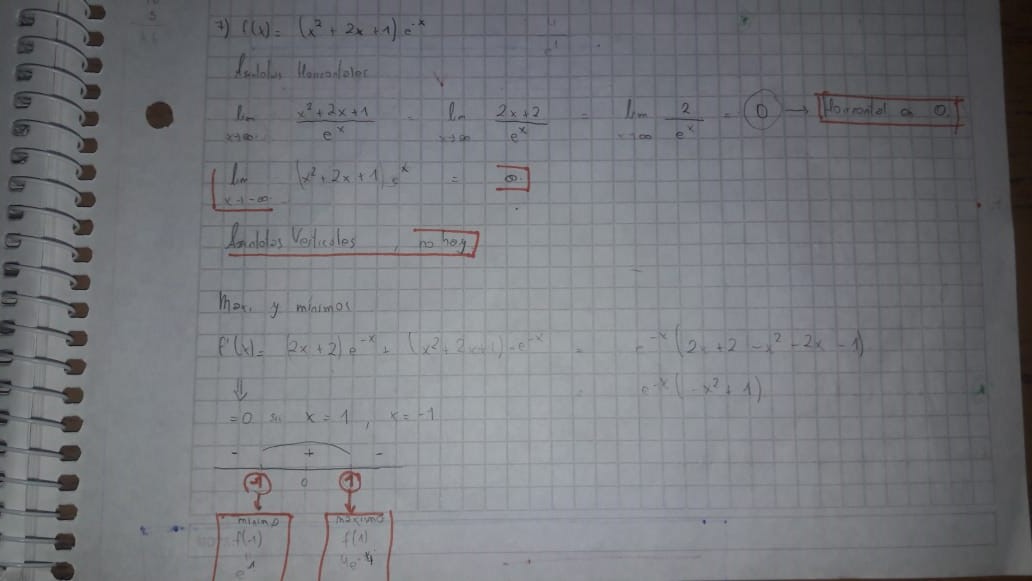 7) f(x) = (x² + 2x + 1) e⁻ˣ
Asíntotas Horizontales
lim x→∞ (x² + 2x + 1)/eˣ = lim x→∞ (2x + 2)/eˣ = lim x→∞ 2/eˣ = 0 → Horizontal en 0.
lim x→-∞ (x² + 2x + 1) eˣ = ∞.
Asíntotas Verticales, no hay
Max. y mínimos
f'(x) = (2x + 2) e⁻ˣ + (x² + 2x + 1) · -e⁻ˣ = e⁻ˣ (2x + 2 - x² - 2x - 1)
e⁻ˣ (-x² + 1)
⇓
= 0 x = 1, x = -1
- + -
-1 0 1
mínimo máximo
f(-1) f(1)